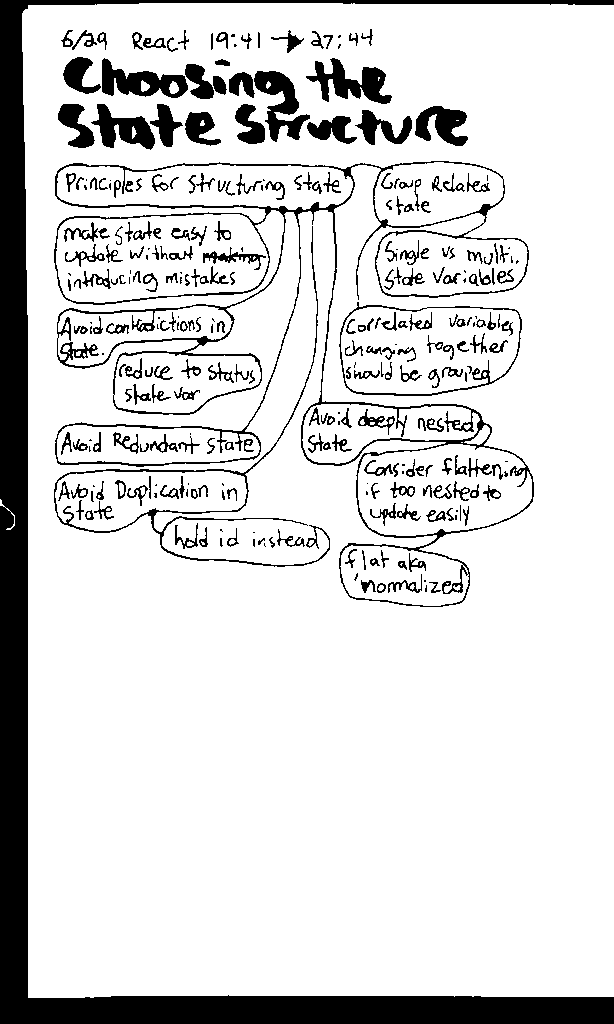 6/29 React 19:41 → 27:44
Choosing the
State Structure
Principles for Structuring State
make state easy to
update without making
introducing mistakes
Avoid contradictions in
State.
reduce to status
state var
Avoid Redundant State
Avoid Duplication in
State
hold id instead
Group Related
state
Single vs multi.
State Variables
Correlated variables
changing together
should be grouped
Avoid deeply nested
State
Consider flattening
if too nested to
update easily
flat aka
'normalized'